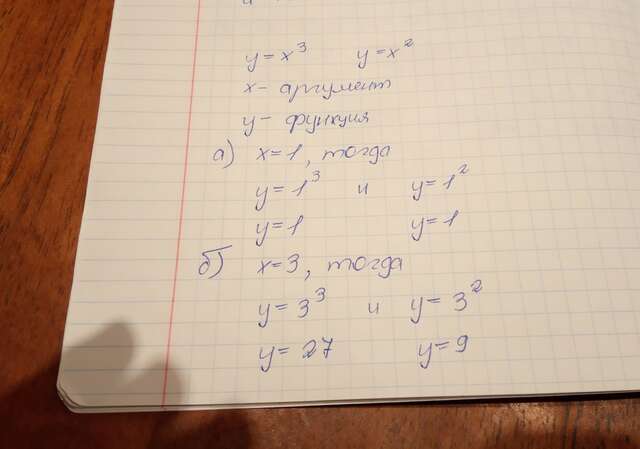 y = x³ y = x²
x - аргумент
y - функция
а) x=1, тогда
y = 1³ и y = 1²
y = 1 y = 1
б) x=3, тогда
y = 3³ и y = 3²
y = 27 y = 9